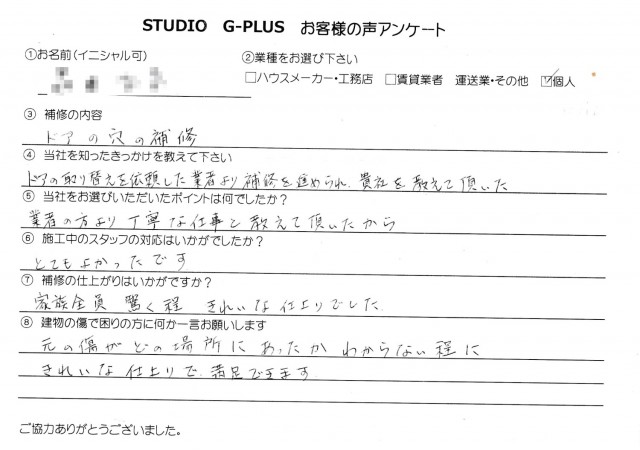 STUDIO G-PLUS お客様の声アンケート
①お名前(イニシャル可)
②業種をお選び下さい
□ハウスメーカー・工務店 □賃貸業者 運送業・その他 ☑個人
③ 補修の内容
ドアの穴の補修
④ 当社を知ったきっかけを教えて下さい
ドアの取り替えを依頼した業者より補修を進められ、貴社を教えて頂いた
⑤ 当社をお選びいただいたポイントは何でしたか?
業者の方より丁寧な仕事と教えて頂いたから
⑥ 施工中のスタッフの対応はいかがでしたか?
とてもよかったです
⑦ 補修の仕上がりはいかがですか?
家族全員 驚く程 きれいな仕上りでした
⑧ 建物の傷で困りの方に何か一言お願いします
元の傷がどの場所にあったかわからない程に
きれいな仕上りで、満足できます
ご協力ありがとうございました。